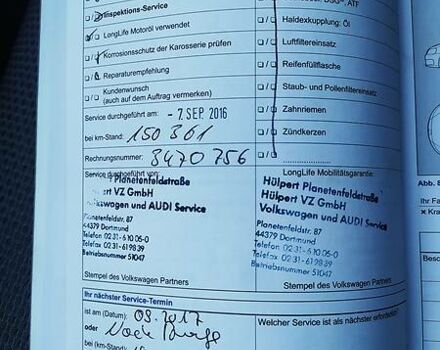 DSG®, ATF
Inspektions-Service
Haldexkupplung: Öl
LongLife Motoröl verwendet
Luftfiltereinsatz
Korrosionsschutz der Karosserie prüfen
Reifenfüllflasche
Reparaturempfehlung
Staub- und Pollenfiltereinsatz
Kundenwunsch
(auch auf dem Auftrag vermerken)
Zahnriemen
Service durchgeführt am: - 7. SEP. 2016
Zündkerzen
bei km-Stand: 150 361
Rechnungsnummer: 3470756
Service durchgeführt von:
LongLife Mobilitätsgarantie:
Planetenfeldstraße
VZ GmbH
Volkswagen und AUDI Service
Planetenfeldstr. 87
44379 Dortmund
Telefon 02 31-6 10 06-0
Telefax 02 31-61 98 39
Betriebsnummer 51047
Stempel des Volkswagen Partners
Hülpert Planetenfeldstraße
Hülpert VZ GmbH
Volkswagen und AUDI Service
Planetenfeldstr. 87
44379 Dortmund
Telefon 02 31-6 10 06-0
Telefax 02 31-61 98 39
Betriebsnummer 51047
Stempel des Volkswagen Partners
Ihr nächster Service-Termin
ist am (Datum): 09.2017
oder
bei (km-Stand):
Welcher Service ist als nächster erforderlich?
Abb.
Ihr Fa
Kra
Besc